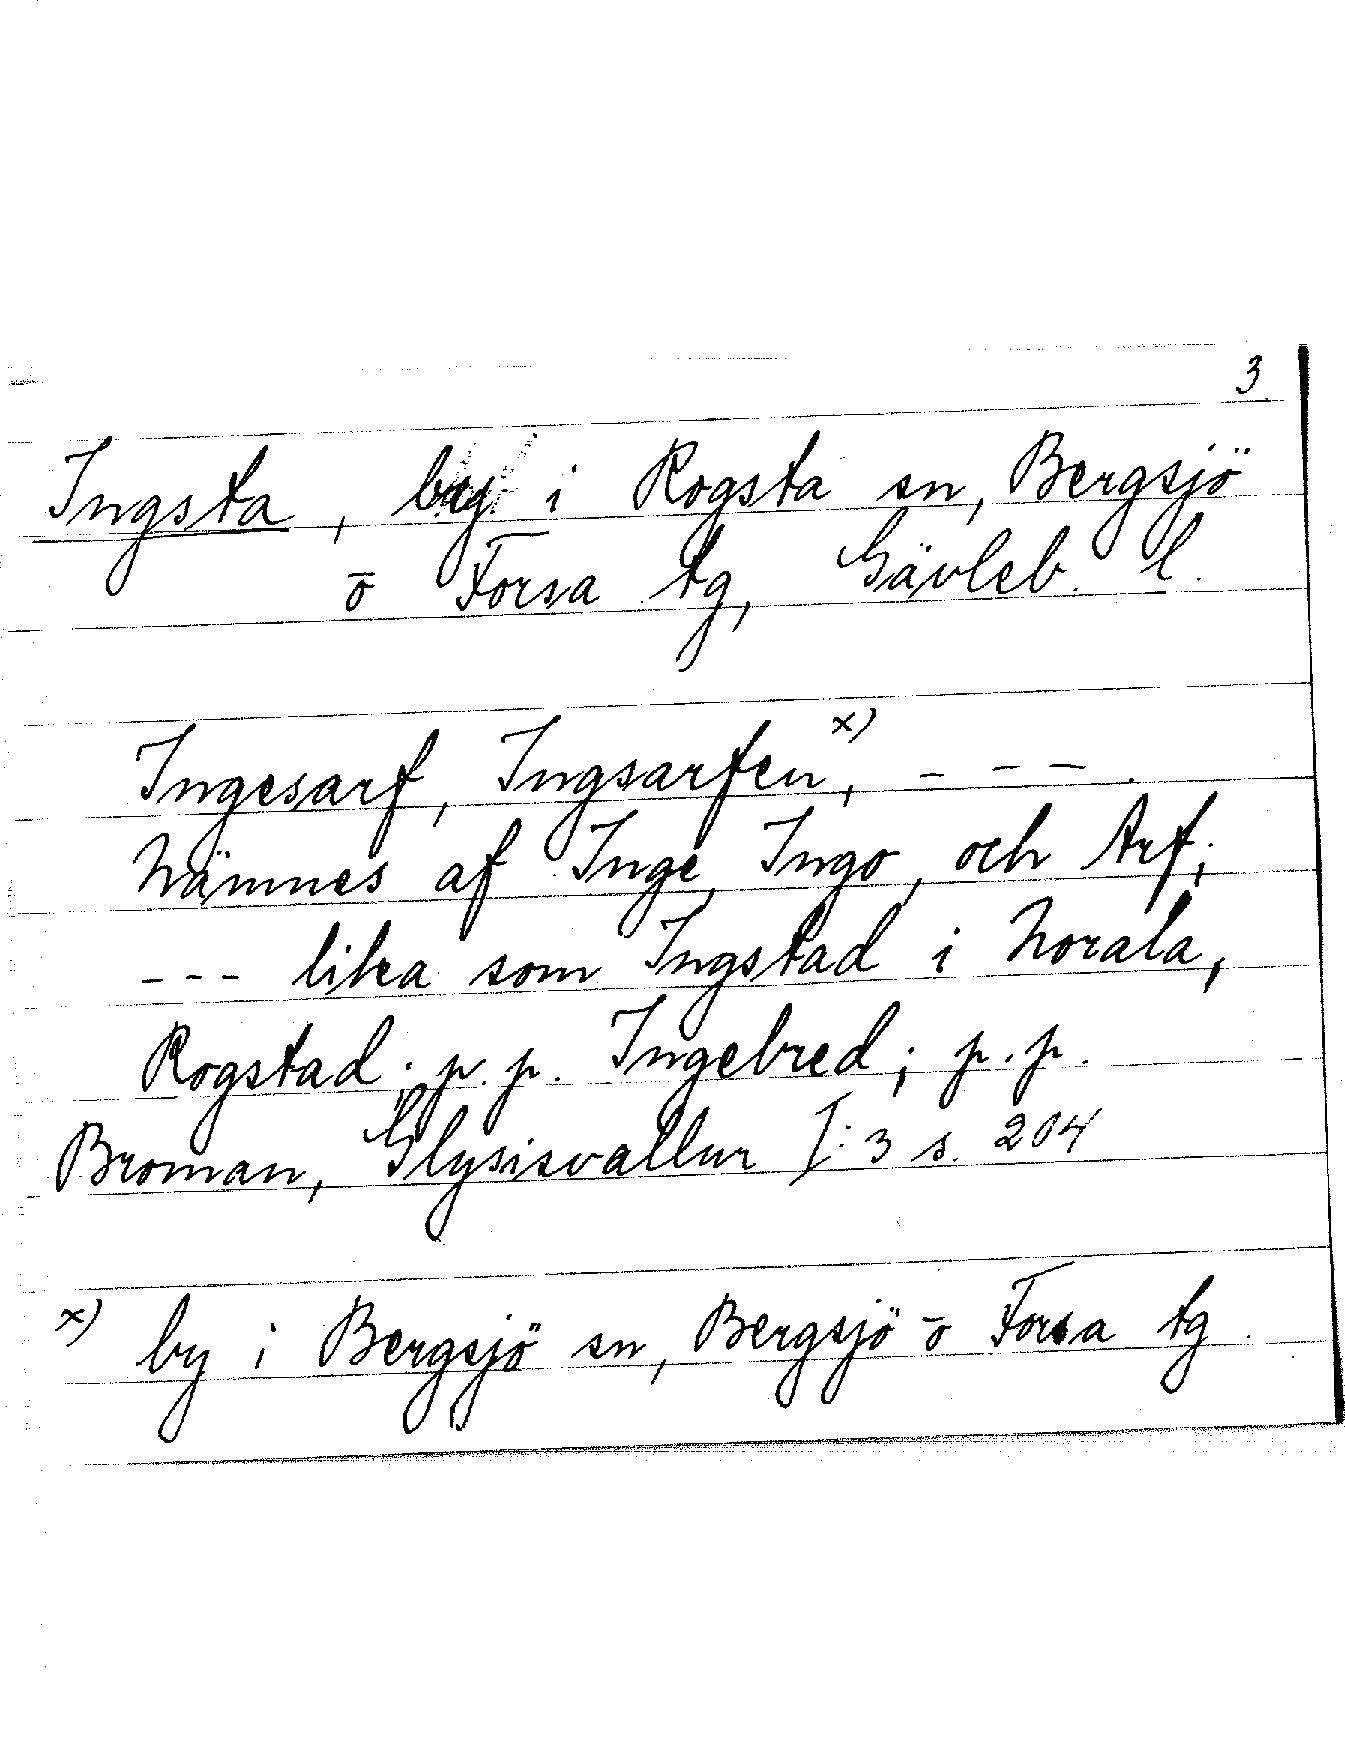 3
Ingsta, by i Rogsta sn, Bergsjö
o Forsa tg, Gävleb. l.
Ingesarf, Ingsarfen x), - - - .
Nämnes af Inge, Ingo, och Arf;
- - - lika som Ingstad i Norala,
Rogstad; p.p. Ingebred; p.p.
Broman, Glysisvallur I:3 s. 204
x) by i Bergsjö sn, Bergsjö o Forsa tg.